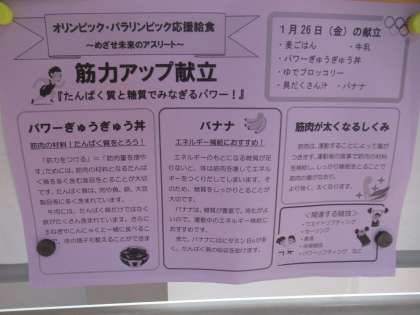 オリンピック・パラリンピック応援給食
～めざせ未来のアスリート～
筋力アップ献立
『たんぱく質と糖質でみなぎるパワー！』
1月26日（金）の献立
・麦ごはん ・牛乳
・パワーぎゅうぎゅう丼
・ゆでブロッコリー
・具だくさん汁 ・バナナ
パワーぎゅうぎゅう丼
筋肉の材料！たんぱく質をとろう！
「筋力をつける」＝「筋肉量を増や
す」ためには、筋肉の材料となるたんぱ
く質を多く含む食品をとることが大切
です。たんぱく質は、肉や魚、卵、大豆
製品等に多く含まれています。
牛肉には、たんぱく質だけではなく
鉄がたくさん含まれています。さらに
玉ねぎやこんにゃくと一緒に食べるこ
とで、体の調子も整えることができます
バナナ
エネルギー補給におすすめ！
エネルギーのもとになる糖質が足り
ないと、体は筋肉を壊してエネルギ
ーをつくりだしてしまいます。そ
のため、糖質をしっかりとることが
大切です。
バナナは、糖質が豊富で、消化がよ
いので、運動中のエネルギー補給に
おすすめです。
また、バナナにはビタミンB6が多
く、たんぱく質の吸収を助けます。
筋肉が太くなるしくみ
筋肉は、運動することによって傷が
つきます。運動後の食事で筋肉の材料
を補給し、しっかり睡眠をとることで
筋肉の傷がなおり、
より強く、太くなります。
＜関連する競技＞
・ウエイトリフティング
・セーリング
・柔道
・体操競技
・パワーリフティング など